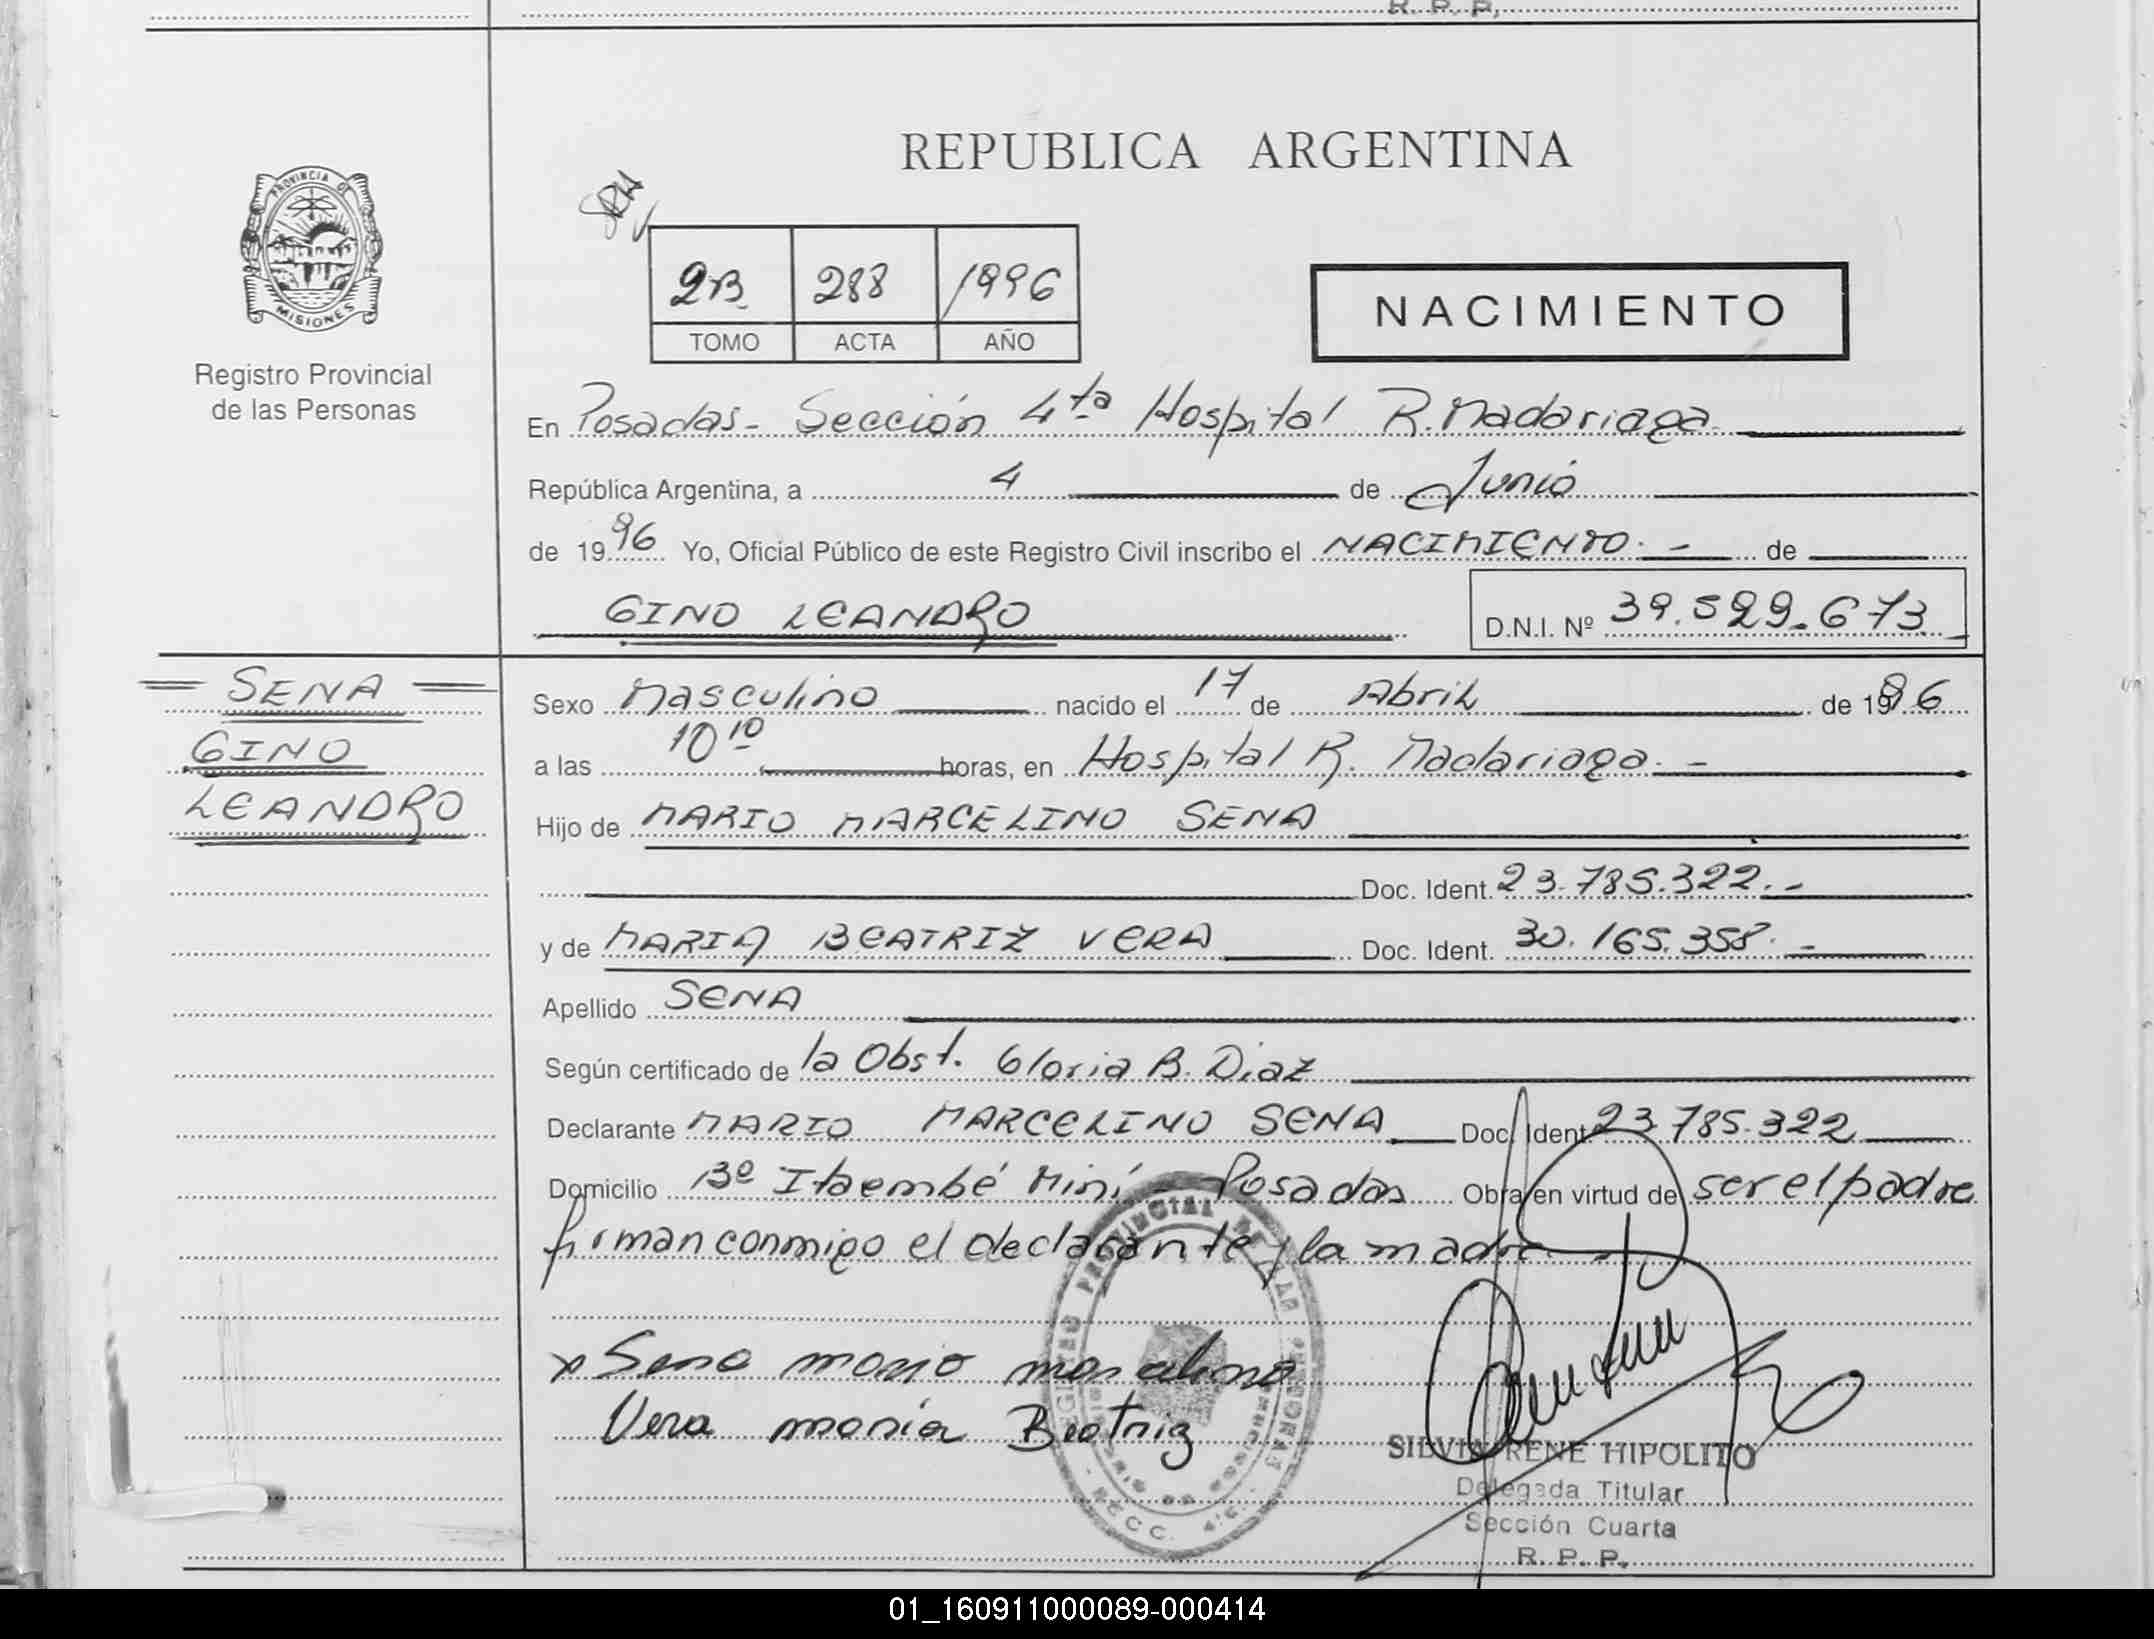 R. P. P.
PROVINCIA DE
MISIONES
Registro Provincial
de las Personas
REPUBLICA ARGENTINA
2B 288 1996
TOMO ACTA AÑO
NACIMIENTO
En Posadas- Sección 4ta Hospital R. Madariaga
República Argentina, a 4 de Junio
de 1996 Yo, Oficial Público de este Registro Civil inscribo el NACIMIENTO.- de
GINO LEANDRO
D.N.I. Nº 39.529.673
SENA
GINO
LEANDRO
Sexo Masculino nacido el 17 de Abril de 1996
a las 10 10 horas, en Hospital R. Madariaga.-
Hijo de MARIO MARCELINO SENA
Doc. Ident. 23.785.322.-
y de MARIA BEATRIZ VERA Doc. Ident. 30.165.358.-
Apellido SENA
Según certificado de la Obst. Gloria B. Diaz
Declarante MARIO MARCELINO SENA Doc. Ident. 23.785.322
Domicilio Bº Itaembé Miní - Posadas Obra en virtud de ser el padre
firman conmigo el declarante y la madre
x Sena mario marcelino
Vera maría Beatriz
SILVIA RENE HIPOLITO
Delegada Titular
Sección Cuarta
R. P. P.
01_160911000089-000414